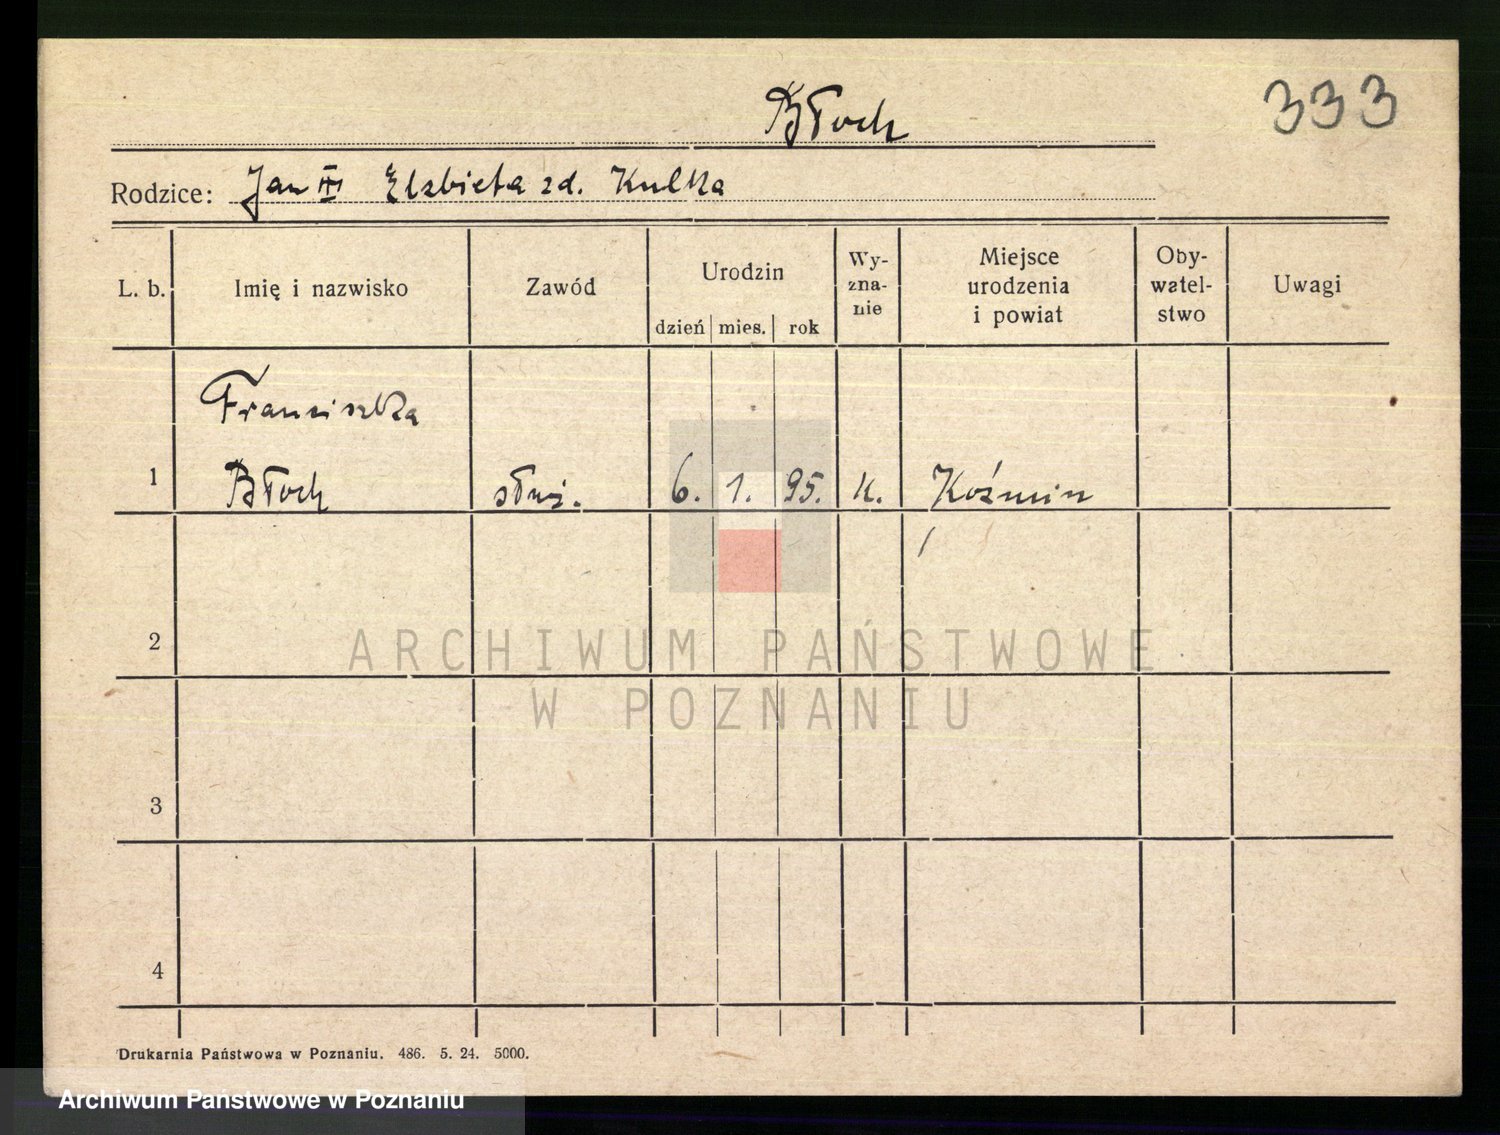 Błoch
333
Rodzice: Jan III Elzbieta zd. Kulka
L. b. Imię i nazwisko Zawód Urodzin dzień mies. rok Wy-zna-nie Miejsce urodzenia i powiat Oby-watel-stwo Uwagi
Franciszka
1 Błoch służ. 6. 1. 95. k. Koźmin
2
ARCHIWUM PAŃSTWOWE
W POZNANIU
3
4
Drukarnia Państwowa w Poznaniu. 486. 5. 24. 5000.
Archiwum Państwowe w Poznaniu